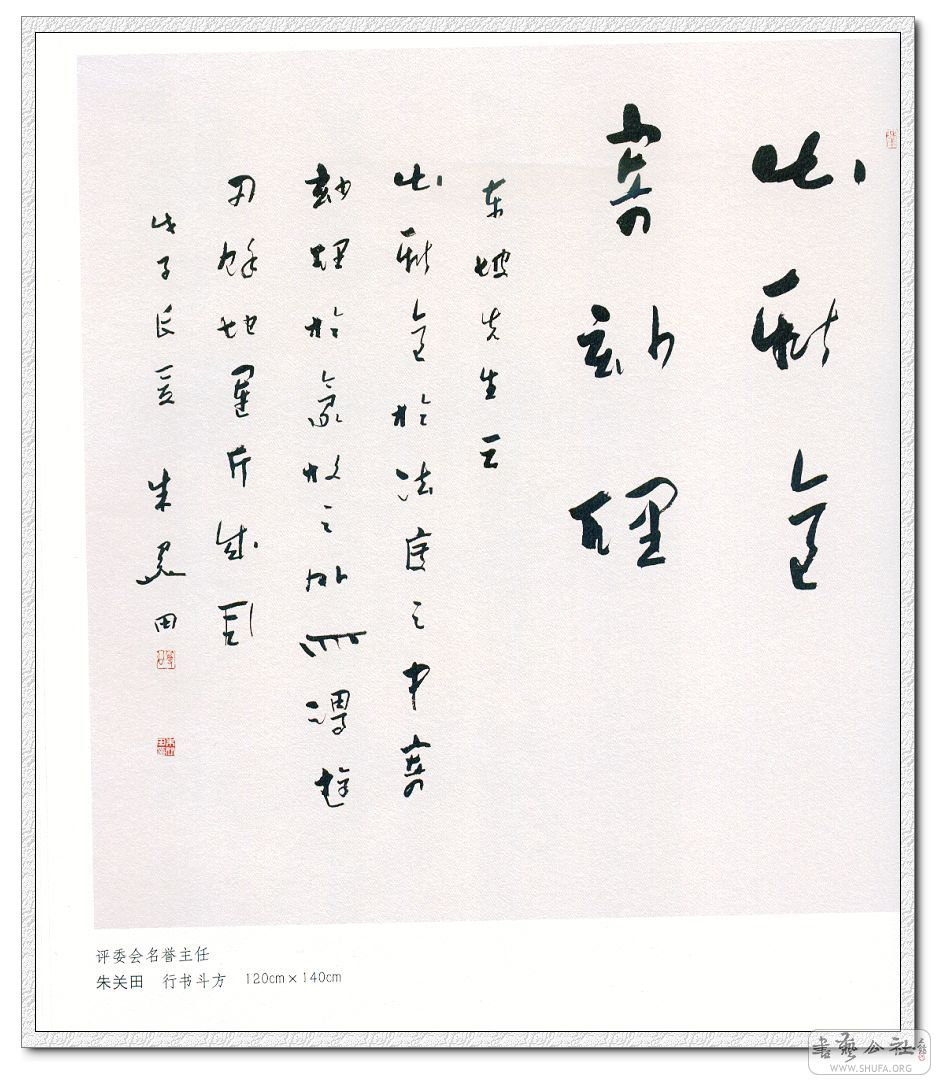 出新意
寄玅理
東坡先生云
出新意於法度之中寄
玅理於豪放之外所謂遊
刃餘地運斤成風
戊子長夏 朱关田
评委会名誉主任
朱关田 行书斗方 120cm×140cm
書藝公社
WWW.SHUFA.ORG